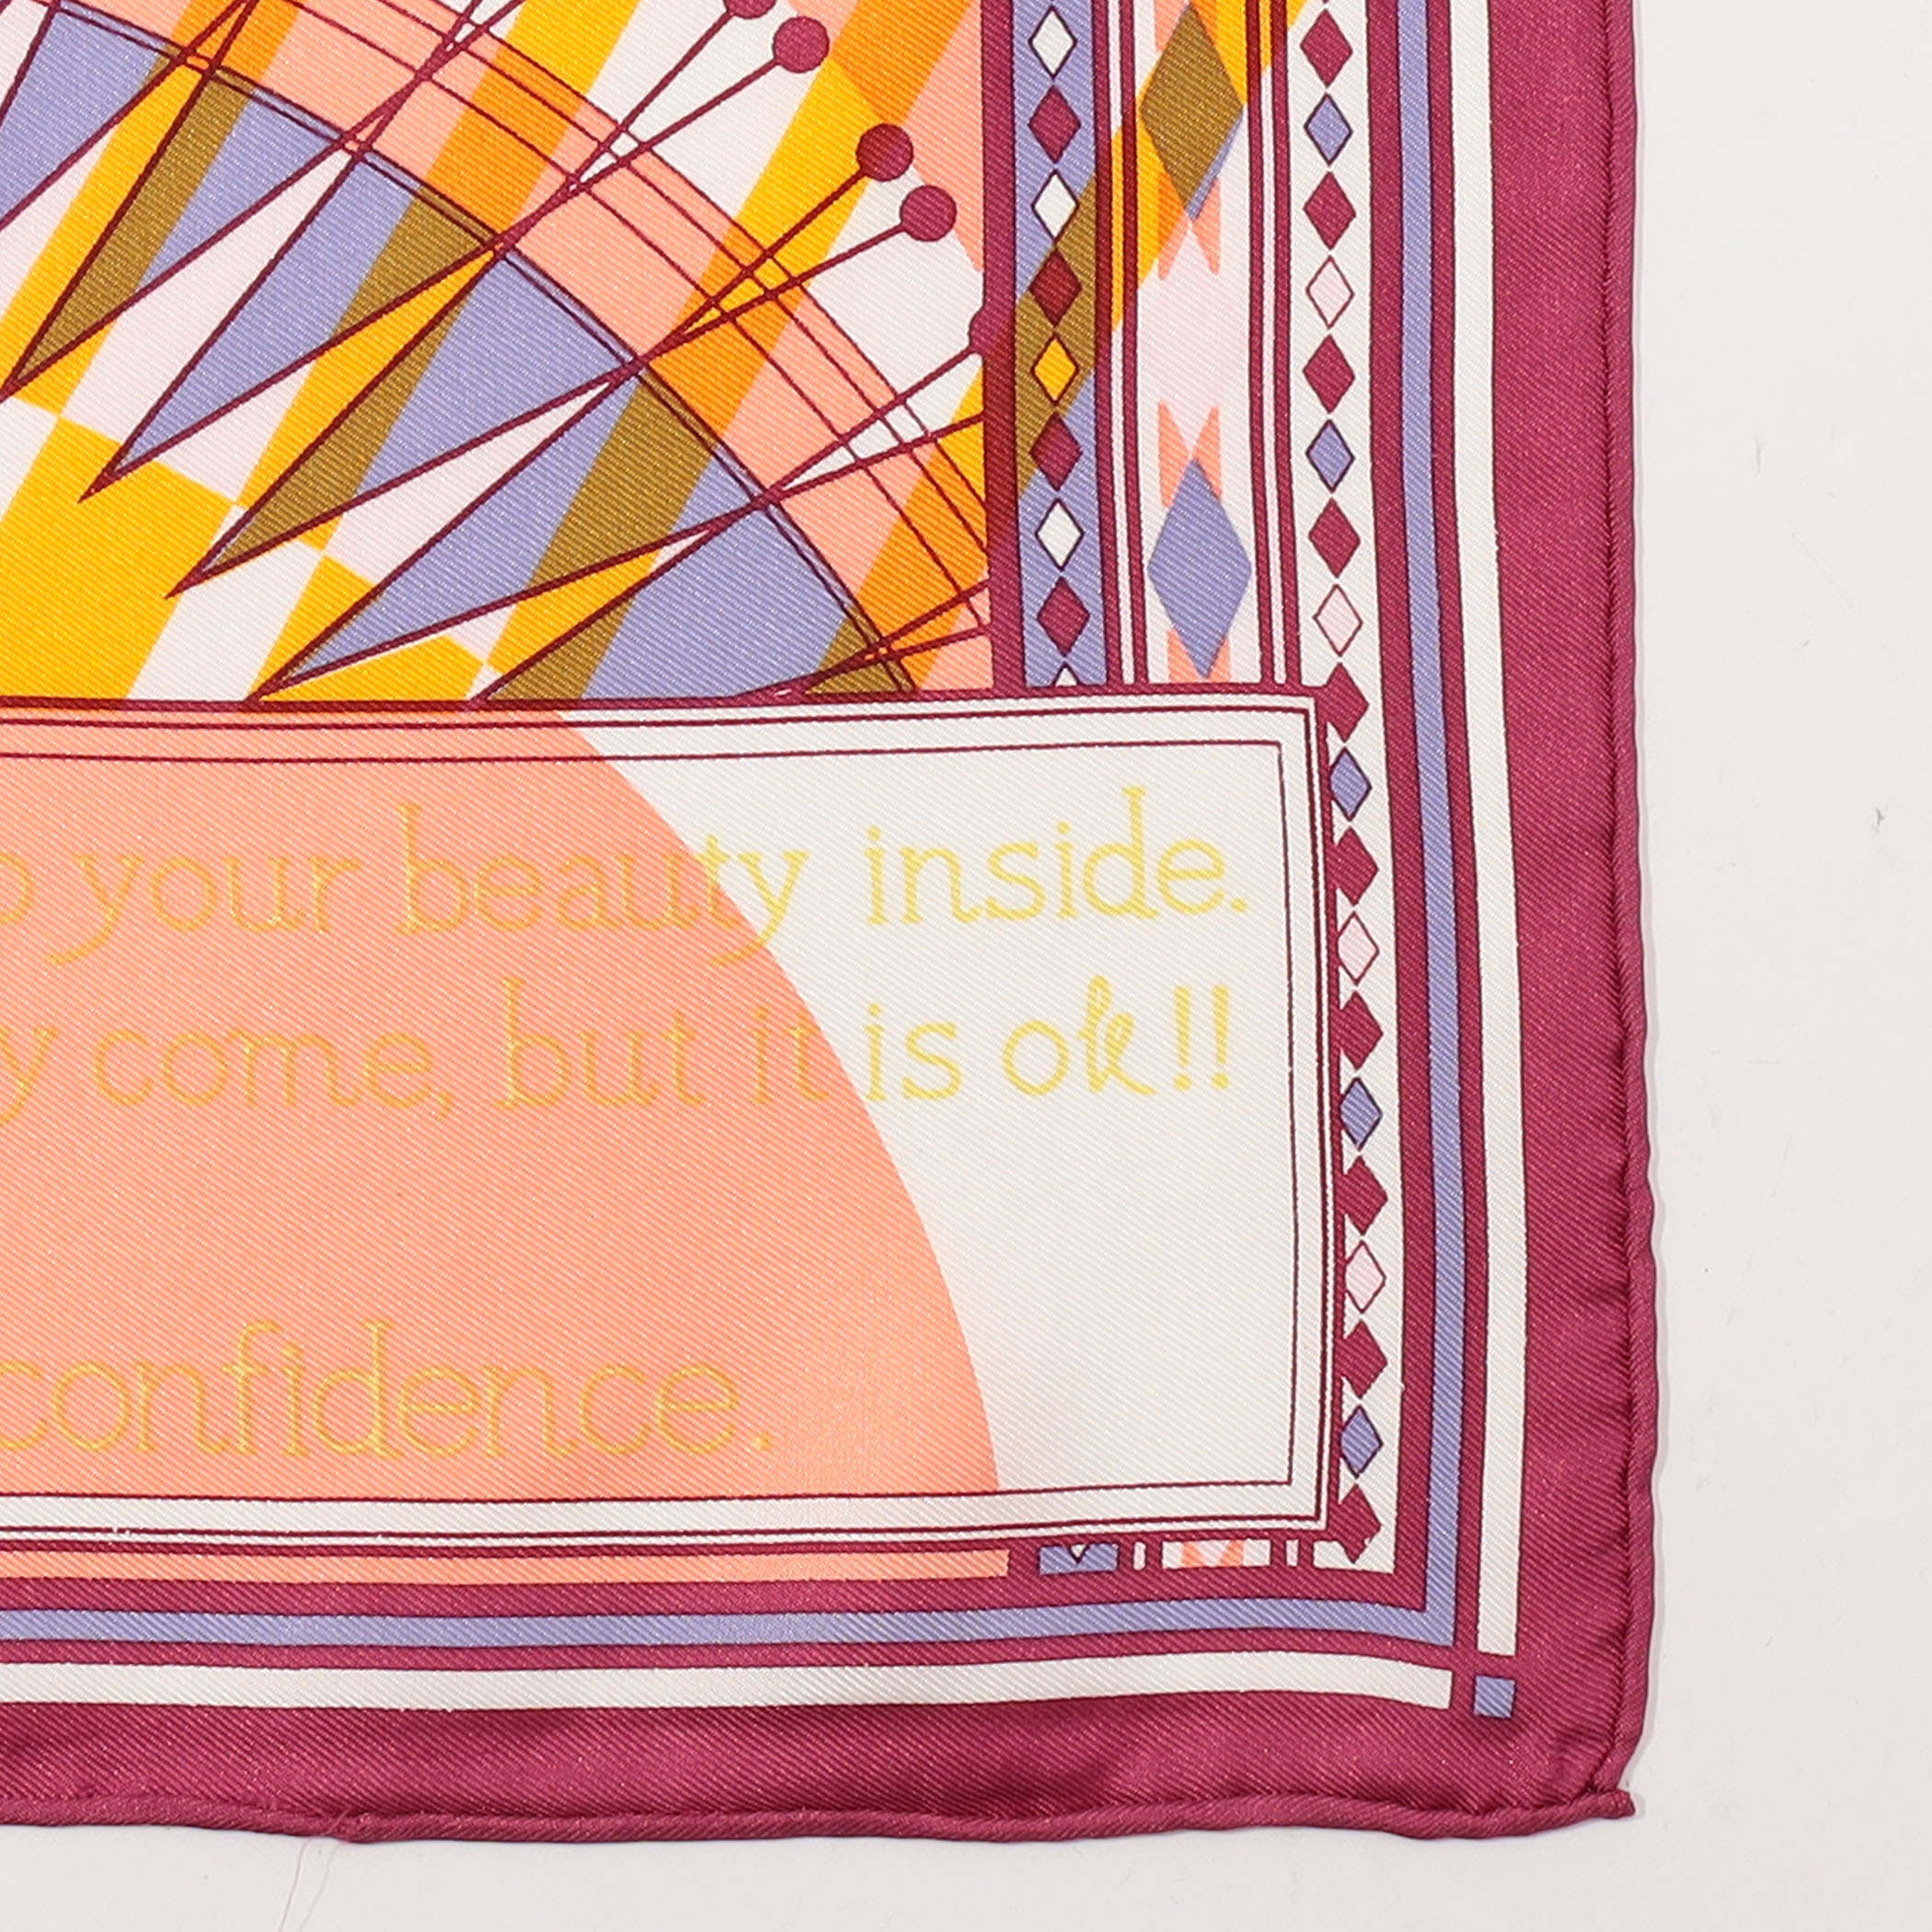 your beauty inside.
come, but it is ok!!
confidence.